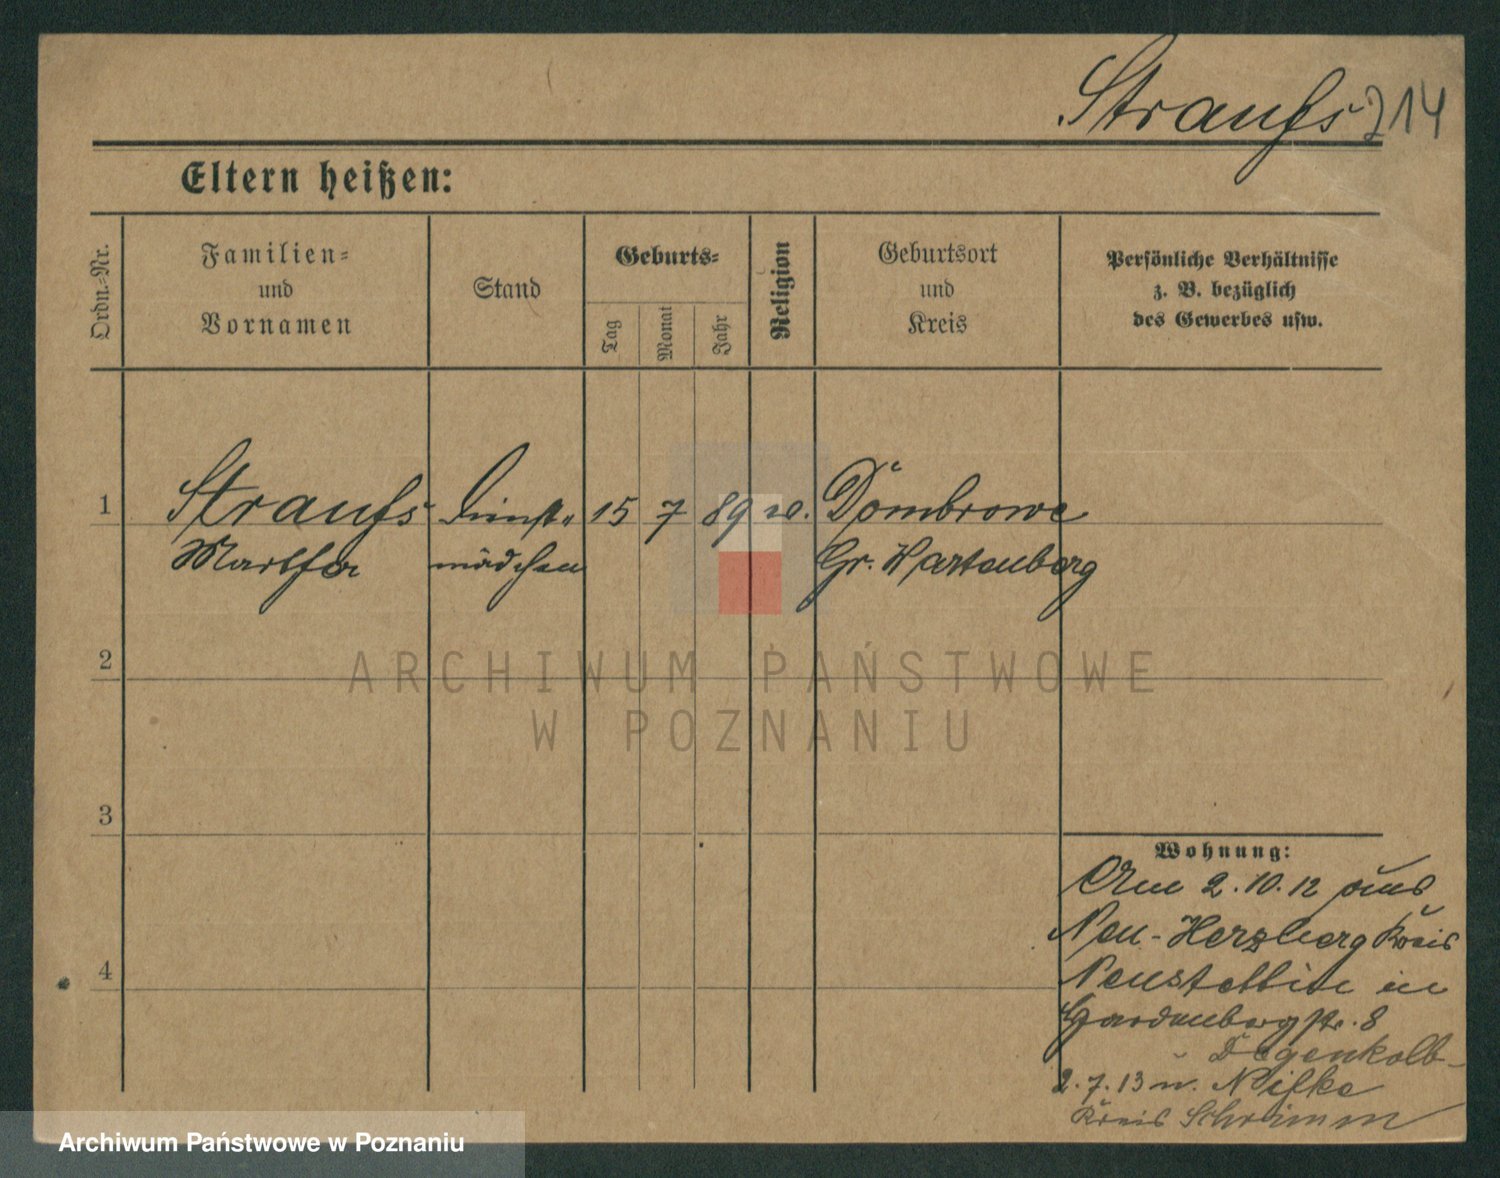 Straufs 714
Eltern heißen:
Ordn.-Nr.
Familien-
und
Vornamen
Stand
Geburts-
Tag
Monat
Jahr
Religion
Geburtsort
und
Kreis
Persönliche Verhältnisse
z. B. bezüglich
des Gewerbes usw.
1 Straufs Dienst- 15 7 89 Dombrowe
Martha mädchen Gr. Wartenberg
2
3
4
Wohnung:
Am 2.10.12 aus
Neu-Herzberg Kreis
Neustettin in
Hardenbergstr. 8
Degenkolb
2.7.13 n.
Kreis Schrimm
ARCHIWUM PAŃSTWOWE
W POZNANIU
Archiwum Państwowe w Poznaniu